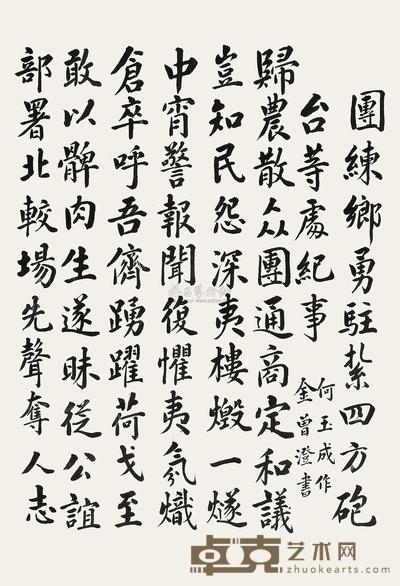 團練鄉勇駐紮四方砲
台等處紀事
何玉成作
金曾澄書
歸農散从團通商定和議
豈知民怨深夷樓燬一燧
中宵警報聞復懼夷氛熾
倉卒呼吾儕踴躍荷戈至
敢以髀肉生遂昧從公誼
部署北較場先聲奪人志
卓克艺术网
www.zhuokearts.com